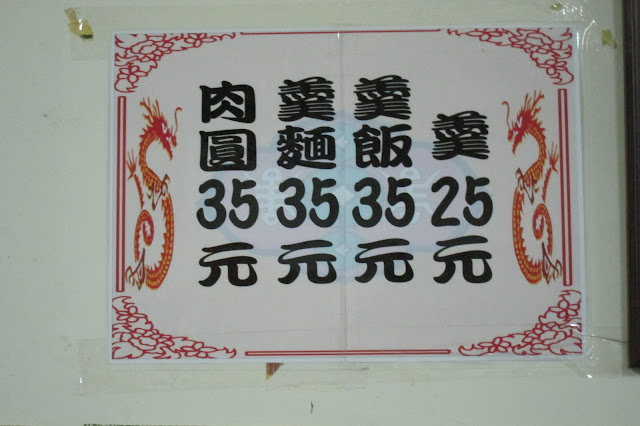 羹25元
羹飯35元
羹麵35元
肉圓35元